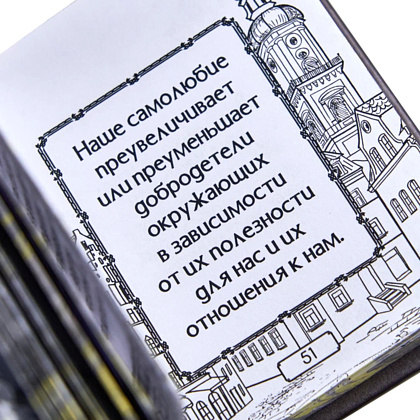 Наше самолюбие
преувеличивает
или преуменьшает
добродетели
окружающих
в зависимости
от их полезности
для нас и их
отношения к нам.
51